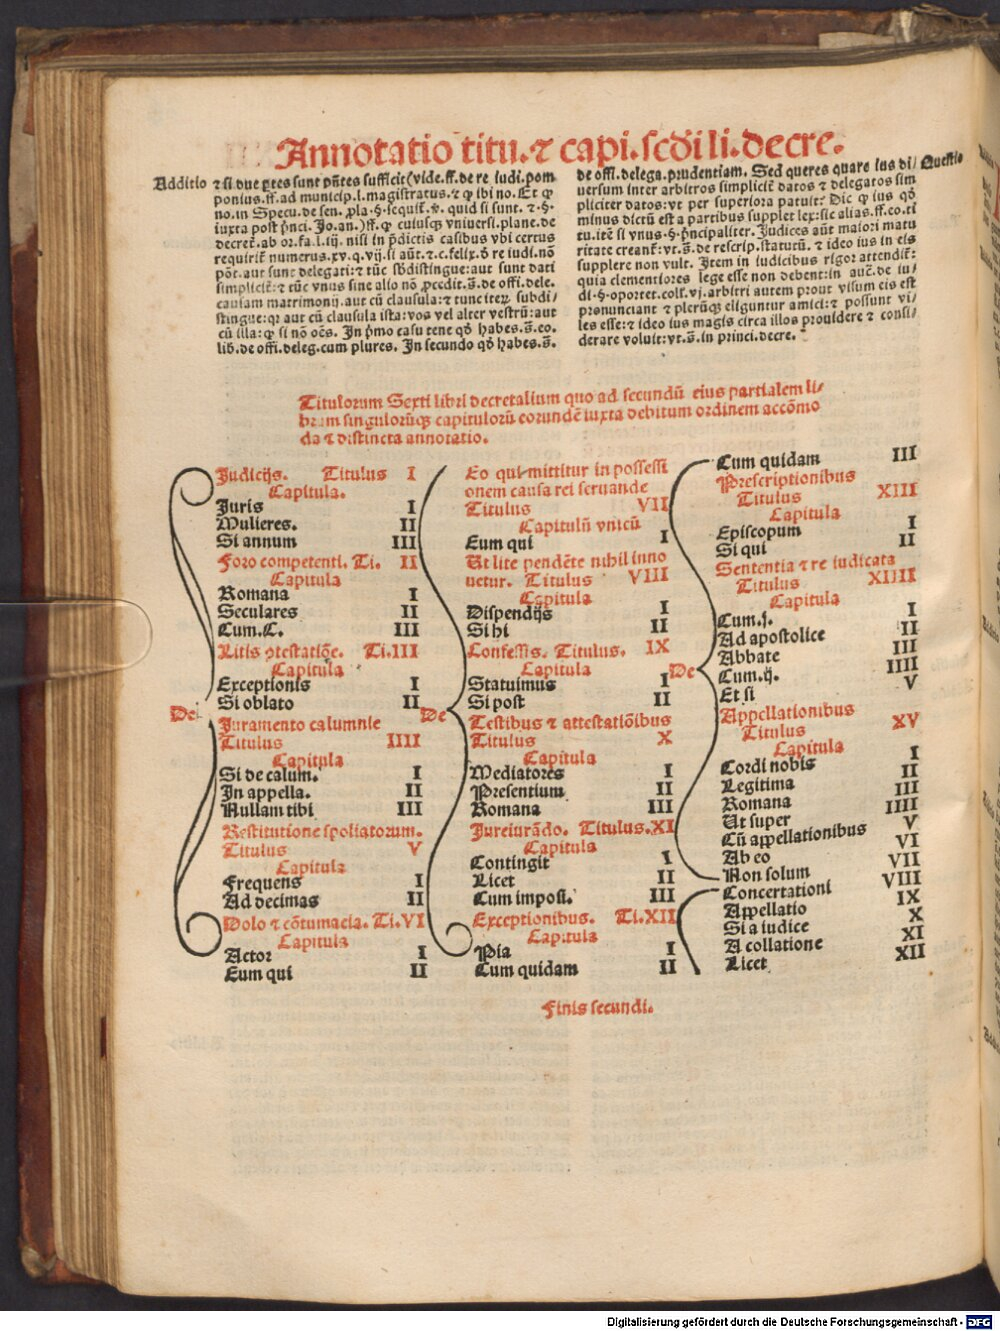 Annotatio titu. ⁊ capi. scd̄i li. decre.
Additio
⁊ si due ꝑtes sunt pñtes sufficit (vide. ff. de re iudi. pom
ponius. ff. ad municip. l. magistratus. ⁊ ꝙ ibi no. Et ꝙ
no. in Specu. de sen. ꝓla. §. sequit᷑. ꝟ. quid si sunt. ⁊. §.
iuxta post pͥnci. Jo. an.) ff. ꝙ cuiusqꝫ vniuersi. plane. de
decret᷑. ab or. fa. l. iij. nisi in p̄dictis casibus vbi certus
requirit᷑ numerus. xv. q. vij. si aūt. ⁊. c. felix. ð re iudi. nō
pōt. aut sunt delegati: ⁊ tūc sb̄distingue: aut sunt dati
simplicit᷑: ⁊ tūc vnus sine alio nō ꝓcedit. s̄. de offi. dele.
causam matrimonij. aut cū clausula: ⁊ tunc iteꝝ subdi/
stingue: qꝛ aut cū clausula ista: vos vel alter vestrū: aut
cū illa: ꝙ si nō oēs. In pͥmo casu tene qð habes. s̄. eo.
lib. de offi. deleg. cum plures. In secundo qð habes. s̄.
de offi. delega. prudentiam. Sed queres quare ius di/
Questio
uersum inter arbitros simplicit᷑ datos ⁊ delegatos sim
pliciter datos: vt per superiora patuit? Dic ꝙ ius qð
minus dictū est a partibus supplet lex: sic alias. ff. co. ti
tu. itē si vnus. §. pͥncipaliter. Judices aūt maiori matu
ritate creant᷑: vt. s̄. de rescrip. statutū. ⁊ ideo ius in eis
supplere non vult. Item in iudicibus rigor attendit᷑:
quia clementiores lege esse non debent: in auc̄. de iu/
di. §. oportet. coll. vj. arbitri autem prout visum eis est
pronunciant ⁊ plerūqꝫ eliguntur amici: ⁊ possunt vi/
les esse: ⁊ ideo ius magis circa illos prouidere ⁊ consi/
derare voluit: vt. s̄. in princi. decre.
Titulorum Sexti libri decretalium quo ad secundū eius partialem li/
brum singulorūqꝫ capitulorū eorundē iuxta debitum ordinem accōmo
da ⁊ distincta annotatio.
De
Judicijs. Titulus I
Capitula.
Juris I
Mulieres. II
Si annum III
Foro competenti. Ti. II
Capitula
Romana I
Seculares II
Cum. C. III
Litis ꝯtestatiōe. Ti. III
Capitula
Exceptionis I
Si oblato II
Juramento calumnie
Titulus IIII
Capitula
Si de calum. I
In appella. II
Nullam tibi III
Restitutione spoliatorum.
Titulus V
Capitula
Frequens I
Ad decimas II
Dolo ⁊ cōtumacia. Ti. VI
Capitula
Actor I
Eum qui II
De
Eo qui mittitur in possessi
onem causa rei seruande
Titulus VII
Capitulū vnicū
Eum qui I
Ut lite pendēte nihil inno
uetur. Titulus VIII
Capitula
Dispendijs I
Si hi II
Confessis. Titulus. IX
Capitula
Statuimus I
Si post II
Testibus ⁊ attestatiōibus
Titulus X
Capitula
Mediatores I
Presentium II
Romana III
Jureiurādo. Titulus. XI
Capitula
Contingit I
Licet II
Cum imposi. III
Exceptionibus. Ti. XII
Capitula
Pia I
Cum quidam II
De
Cum quidam III
Prescriptionibus
Titulus XIII
Capitula
Episcopum I
Si qui II
Sententia ⁊ re iudicata
Titulus XIIII
Capitula
Cum. j. I
Ad apostolice II
Abbate III
Cum. ij. IIII
Et si V
Appellationibus
Titulus XV
Capitula
Cordi nobis I
Legitima II
Romana III
Ut super IIII
Cū appellationibus V
Ab eo VI
Non solum VII
Concertationi VIII
Appellatio IX
Si a iudice X
A collatione XI
Licet XII
Finis secundi.
Digitalisierung gefördert durch die Deutsche Forschungsgemeinschaft - DFG